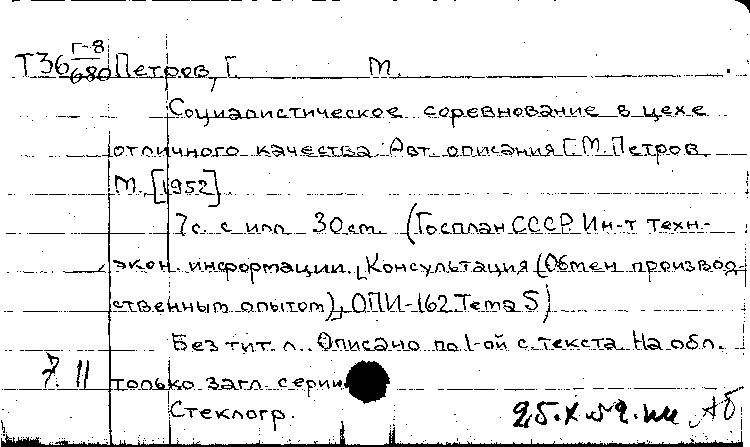 Т36 Г-8/680 Петров, Г. М.
Социалистическое соревнование в цехе
отличного качества. Авт. описания Г. М. Петров.
М. [1952].
7 с. с илл. 30 см. (Госплан СССР. Ин-т техн-
экон. информации. Консультация (Обмен производ-
ственным опытом), ОПИ-162. Тема 5)
Без тит. л. Описано по 1-ой с. текста. На обл.
только загл. серии.
7. 11
Стеклогр.